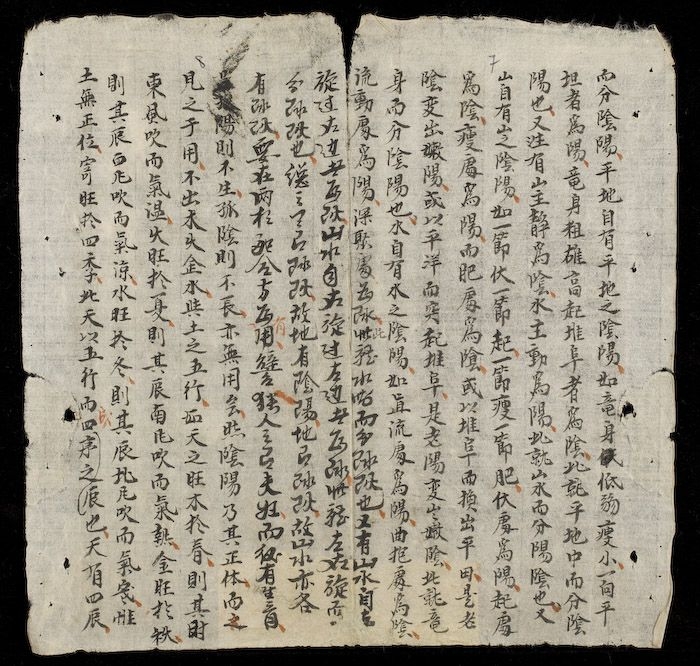 7
而分陰陽平地自有平地之陰陽如竜身或低弱瘦小一向平
坦者為陽竜身粗雄高起堆阜者為陰此就平地中而分陰
陽也又注有山主靜為陰水主動為陽此就山水而分陽陰也又
山自有山之陰陽如一節伏一節起一節瘦一節肥伏處為陽起處
為陰瘦處為陽而肥處為陰或以堆阜而換出平田是老
陰变出嫩陽或以平洋而突起堆阜是老陽变出嫩陰此就竜
身而分陰陽也水自有水之陰陽如直流處為陽曲抱處為陰
流動處為陽深聚處为阴此水而分阴阳也又有山水自右
旋过左边者为阳山水自右旋过左边者为阴此左右旋而
分阴阳也總之天有阴阳故地有陰陽地有阴阳故山水亦各
有阴阳要在兩相配合方為有用譬猶人之有夫妇而後有生育
8
陽則不生孤陰則不長亦無用矣然陰陽乃其正体而之
見之于用不出木火金水與土之五行如天之旺木於春則其时
東風吹而氣温火旺於夏則其辰南风吹而氣熱金旺於秋
則其辰西风吹而氣凉水旺於冬則其辰北风吹而氣寒惟
土無正位寄旺於四季此天以五行而四序之辰也天有四辰